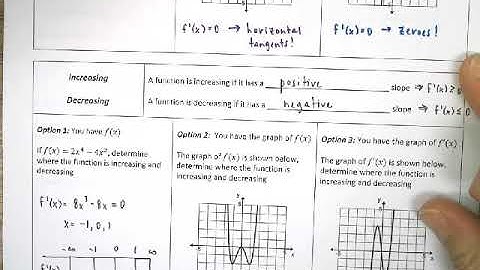 f'(x)=0 → horizontal
tangents!
f'(x)=0 → zeroes!
Increasing
A function is increasing if it has a positive slope ⇒ f'(x) ≥ 0
Decreasing
A function is decreasing if it has a negative slope ⇒ f'(x) ≤ 0
Option 1: You have f(x)
If f(x) = 2x⁴ − 4x², determine
where the function is increasing and
decreasing
f'(x) = 8x³ - 8x = 0
x = -1, 0, 1
-∞ -1 0 1 ∞
f'(x)
Option 2: You have the graph of f(x)
The graph of f(x) is shown below,
determine where the function is
increasing and decreasing
Option 3: You have the graph of f'(x)
The graph of f'(x) is shown below,
determine where the function is
increasing and decreasing